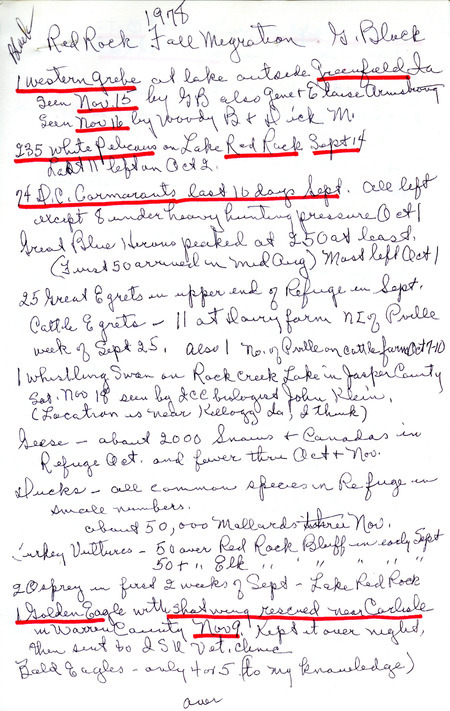 1978
Black
Red Rock Fall Migration G. Black
1 western grebe at lake outside Greenfield Ia
Seen Nov. 15 by GB also Gene & Eloise Armstrong
Seen Nov 16 by Woody B & Dick M.
235 White Pelicans on Lake Red Rock Sept 14
Last 11 left on Oct 2.
74 D.C. Cormorants last 10 days Sept. All left
except 8 under heavy hunting pressure Oct 1
Great Blue Herons peaked at 250 at least.
(First 50 arrived in mid Aug) Most left Oct 1
25 Great Egrets in upper end of Refuge in Sept.
Cattle Egrets - 11 at dairy farm NE of Pville
week of Sept 25. Also 1 No. of Pville on cattle farm Oct 7-10
1 Whistling Swan on Rock creek Lake in Jasper County
Sat. Nov 18 seen by ICC biologist John Klein.
(Location is near Kellogg Ia, I think)
Geese - about 2000 Snows & Canadas in
Refuge Oct. and fewer thru Oct & Nov.
Ducks - all common species in Refuge in
small numbers.
about 50,000 Mallards thru Nov.
Turkey Vultures - 50 over Red Rock Bluff in early Sept
50 + " Elk " " " " " "
2 Osprey in first 2 weeks of Sept - Lake Red Rock
1 Golden Eagle with shot wing rescued near Carlisle
in Warren County Nov 9. Kept it over night,
then sent to ISU Vet. clinic
Bald Eagles - only 4 or 5 (to my knowledge)
over